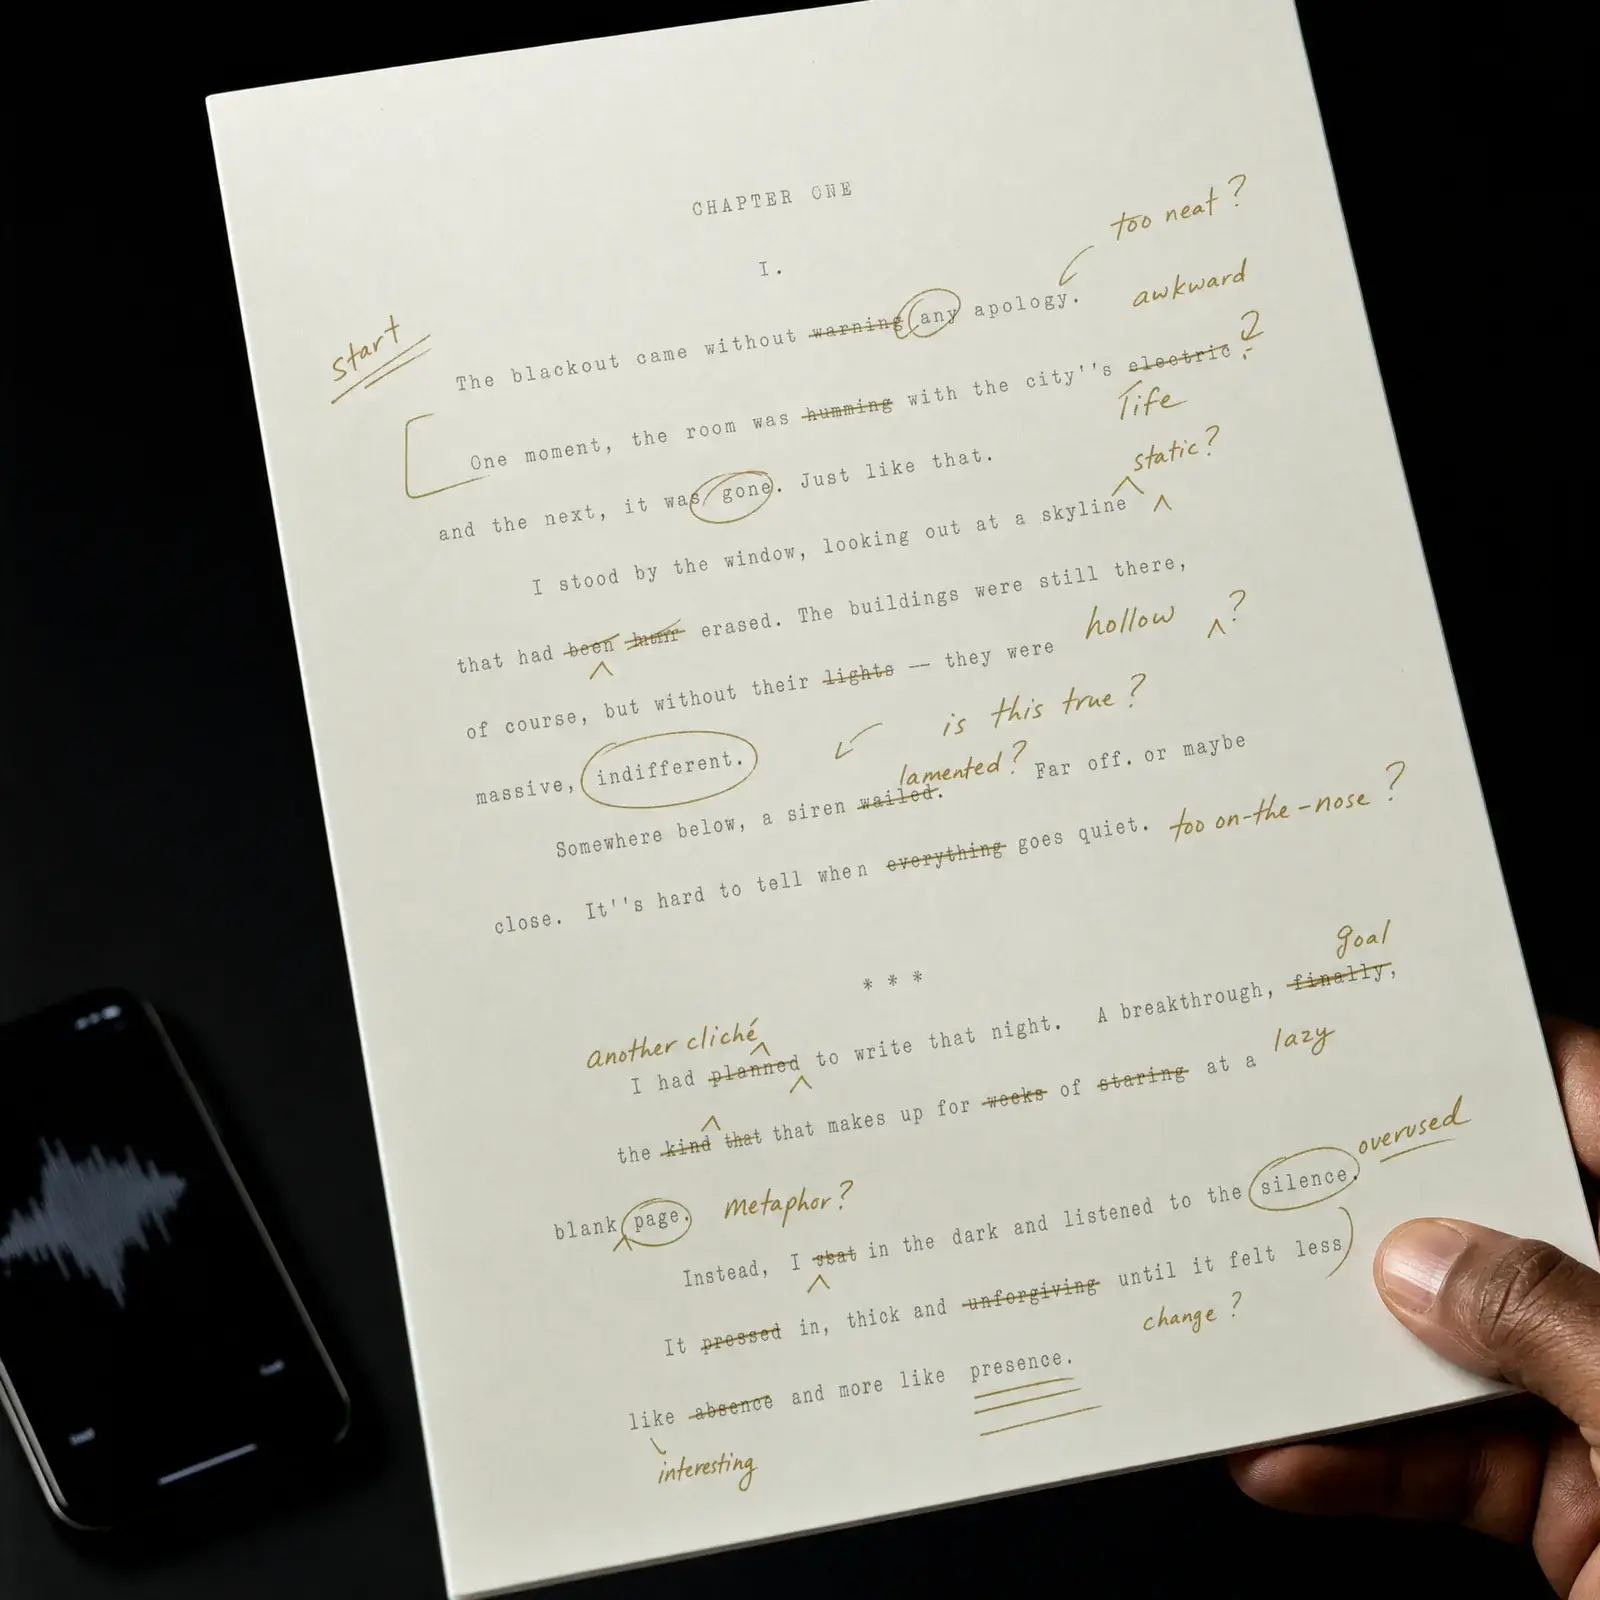 CHAPTER ONE
I.
too neat?
start
The blackout came without warning any apology.
awkward
One moment, the room was humming with the city''s electric
life
and the next, it was gone. Just like that.
static?
I stood by the window, looking out at a skyline
that had been erased. The buildings were still there,
hollow ?
of course, but without their lights — they were
is this true?
massive, indifferent.
lamented?
Somewhere below, a siren wailed. Far off. or maybe
close. It''s hard to tell when everything goes quiet. too on-the-nose?
* * *
goal
another cliché
I had planned to write that night. A breakthrough, finally,
lazy
the kind that that makes up for weeks of staring at a
overused
blank page. metaphor?
Instead, I in the dark and listened to the silence.
It pressed in, thick and unforgiving until it felt less
change?
like absence and more like presence.
interesting